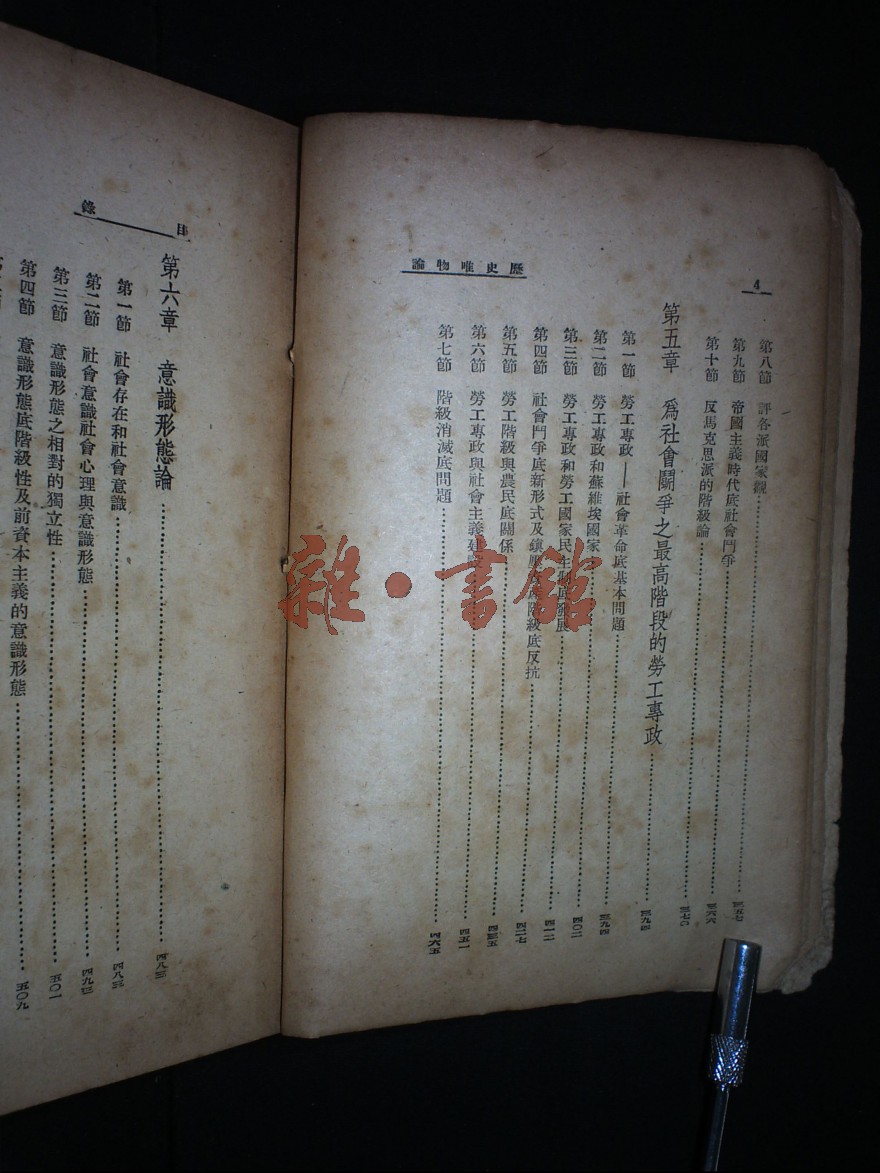 4
歷史唯物論
第八節 評各派國家觀 三五七
第九節 帝國主義時代底社會鬥爭 三六六
第十節 反馬克思派的階級論 三七〇
第五章 爲社會鬭爭之最高階段的勞工專政 三九四
第一節 勞工專政——社會革命底基本問題 三九四
第二節 勞工專政和蘇維埃國家 四〇二
第三節 勞工專政和勞工國家民主制底發展 四一二
第四節 社會鬥爭底新形式及鎮壓 階級底反抗 四二七
第五節 勞工階級與農民底關係 四三五
第六節 勞工專政與社會主義建 四五一
第七節 階級消滅底問題 四六五
目錄
第六章 意識形態論 四八三
第一節 社會存在和社會意識 四八三
第二節 社會意識社會心理與意識形態 四九三
第三節 意識形態之相對的獨立性 五〇一
第四節 意識形態底階級性及前資本主義的意識形態 五〇九
雜·書館